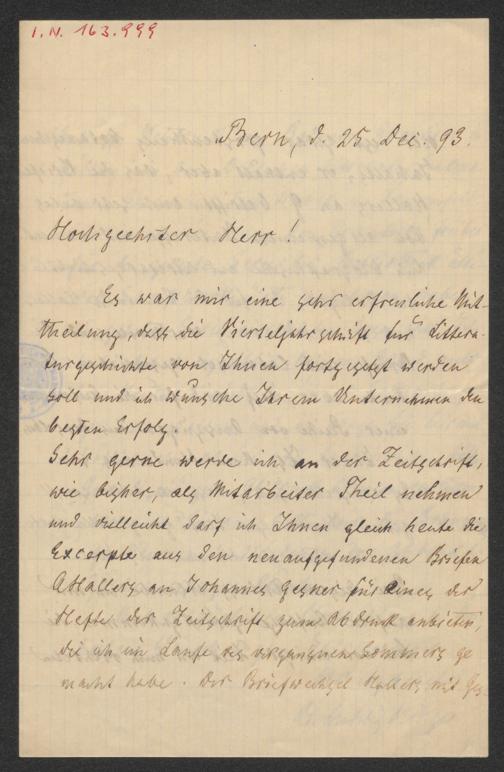 I. N. 163.999
Bern, d. 25 Dec. 93.
Hochgeehrter Herr!
Es war mir eine sehr erfreuliche Mit-
theilung, dass die Vierteljahrschrift für Littera-
turgeschichte von Ihnen fortgesetzt werden
soll und ich wünsche Ihrem Unternehmen den
besten Erfolg.
Sehr gerne werde ich an der Zeitschrift,
wie bisher, als Mitarbeiter Theil nehmen
und vielleicht darf ich Ihnen gleich heute die
Excerpte aus den neuaufgefundenen Briefen
A Hallers an Johannes Gesner für eines der
Hefte der Zeitschrift zum Abdruck anbieten,
die ich im Laufe des vergangnen Sommers ge
macht habe. Der Briefwechsel Hallers mit Ges